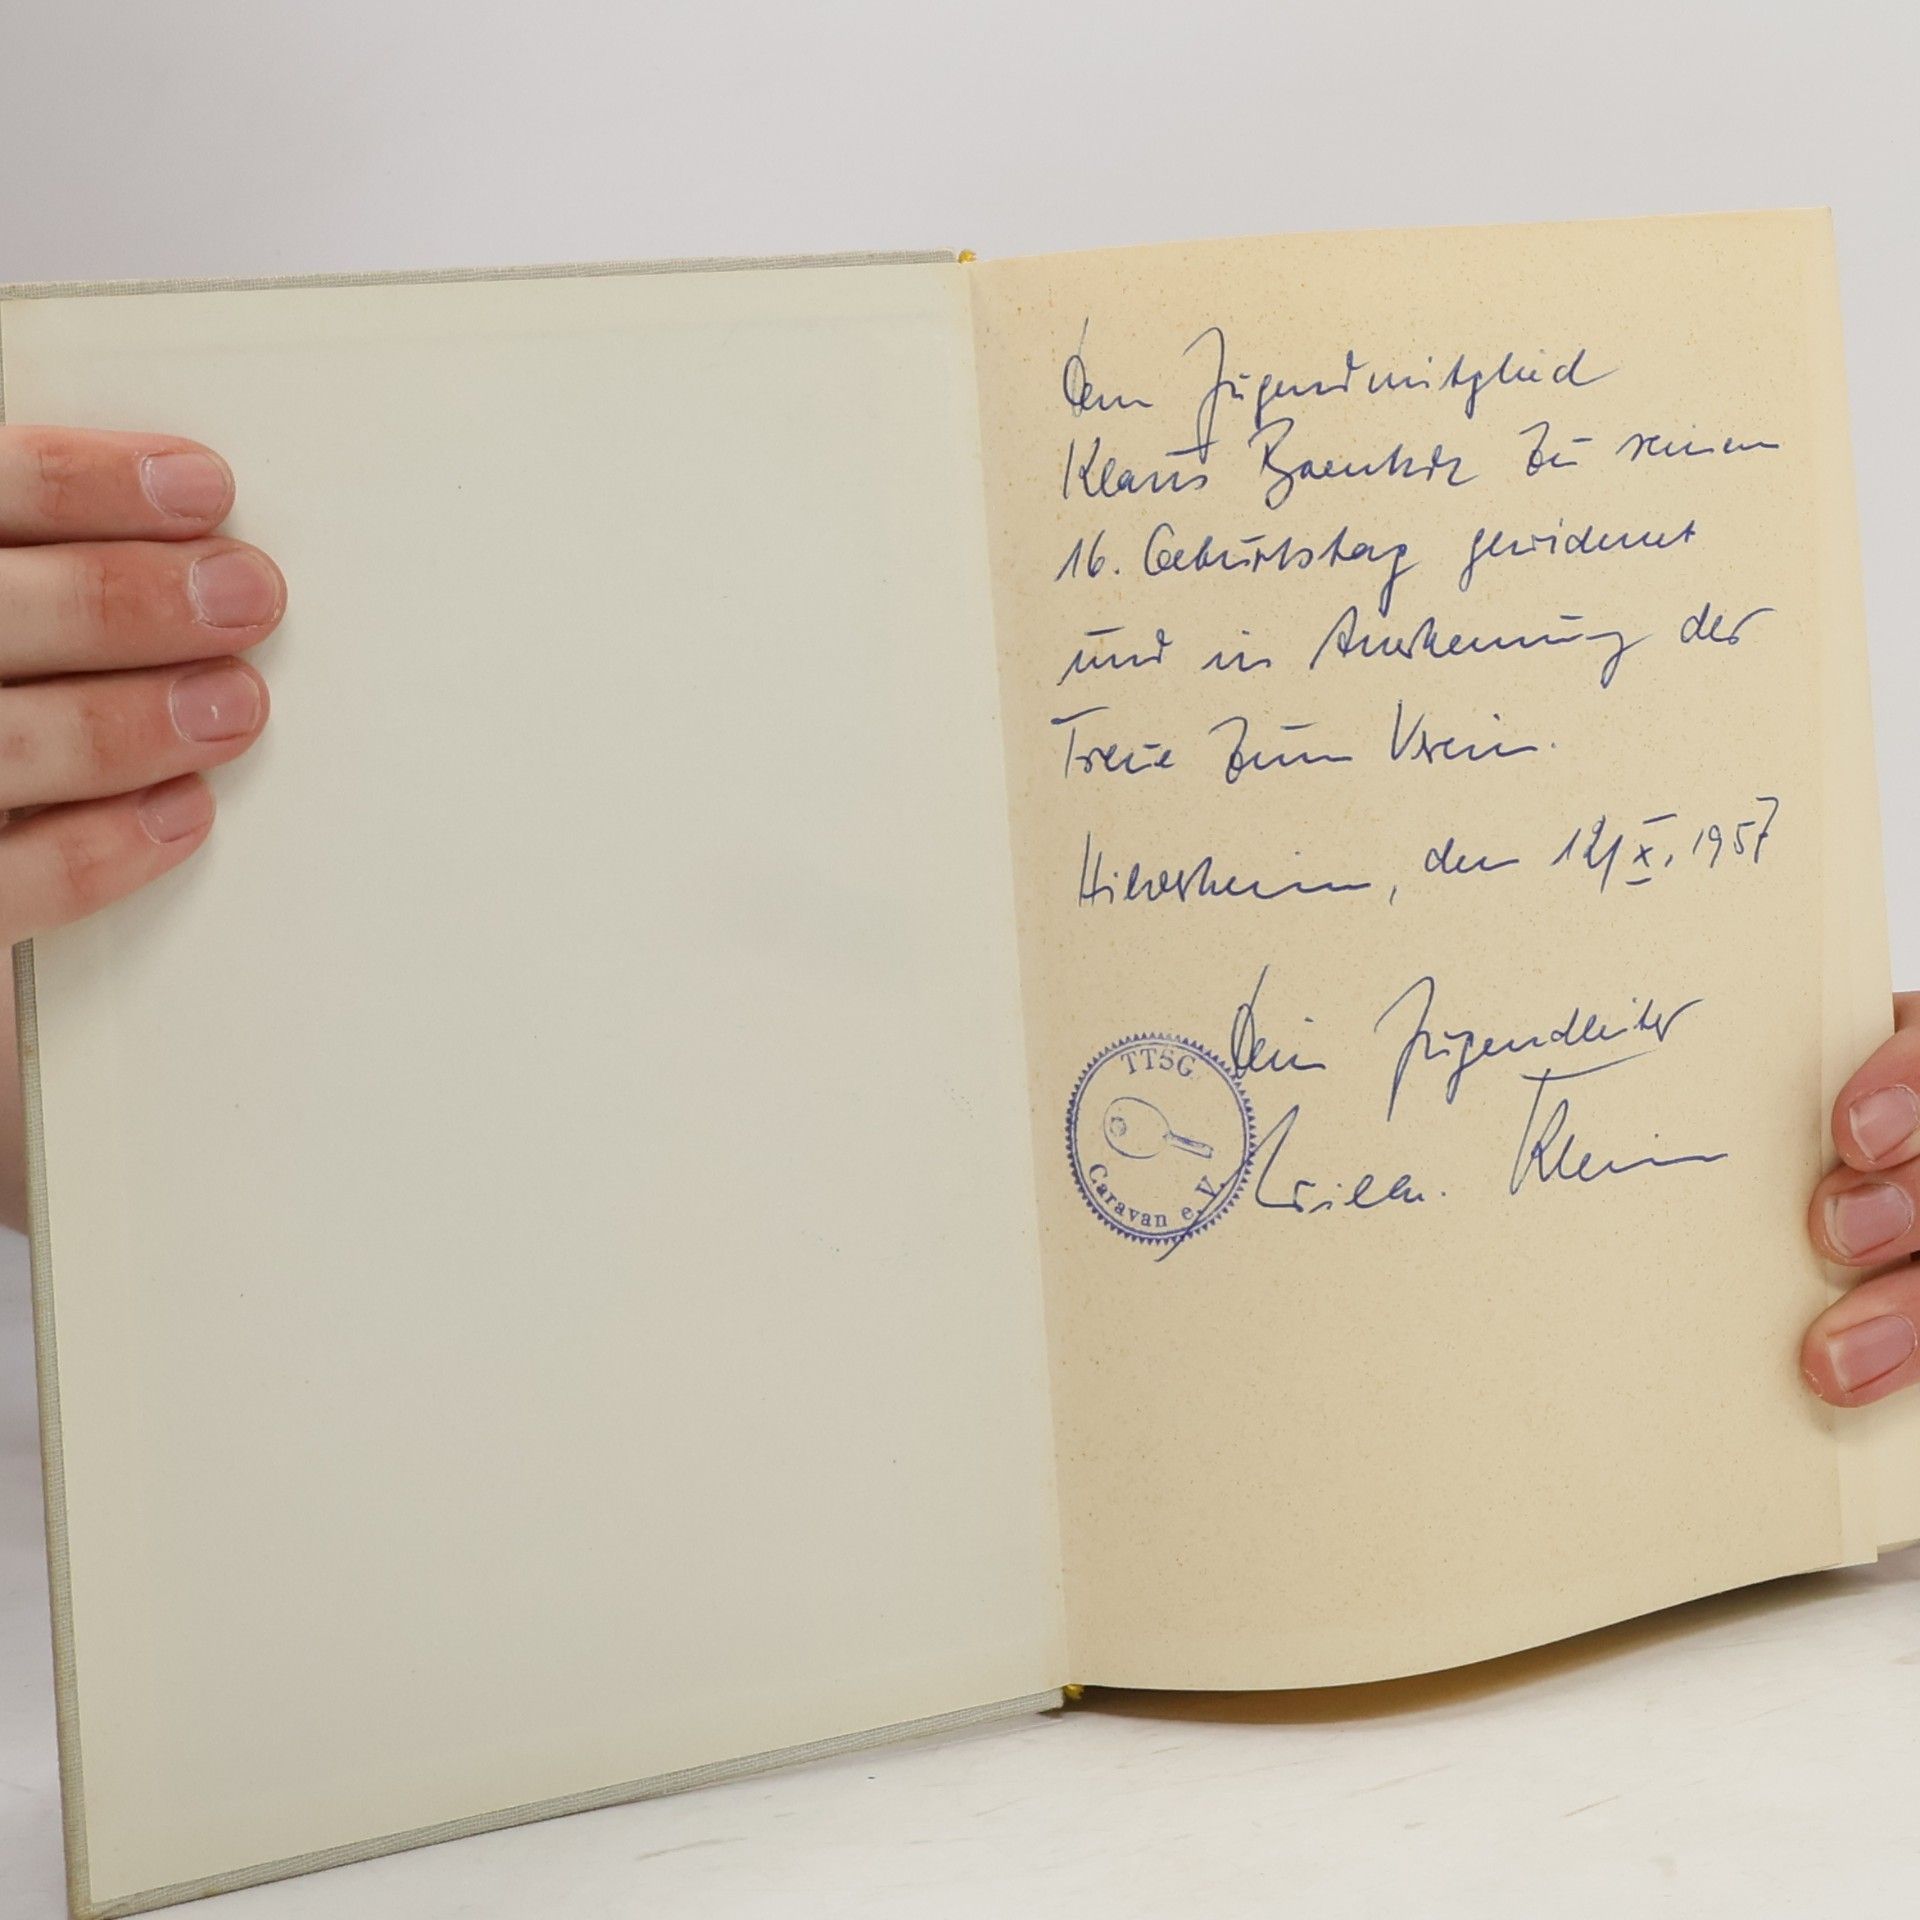 Dem Jugendmitglied
Klaus zu seinem
16. Geburtstag gewidmet
und in Anerkennung der
Treue zum Verein.
Hildesheim, den 12/X. 1957
Dein Jugendleiter
Klein
TTSG
Caravan e. V.